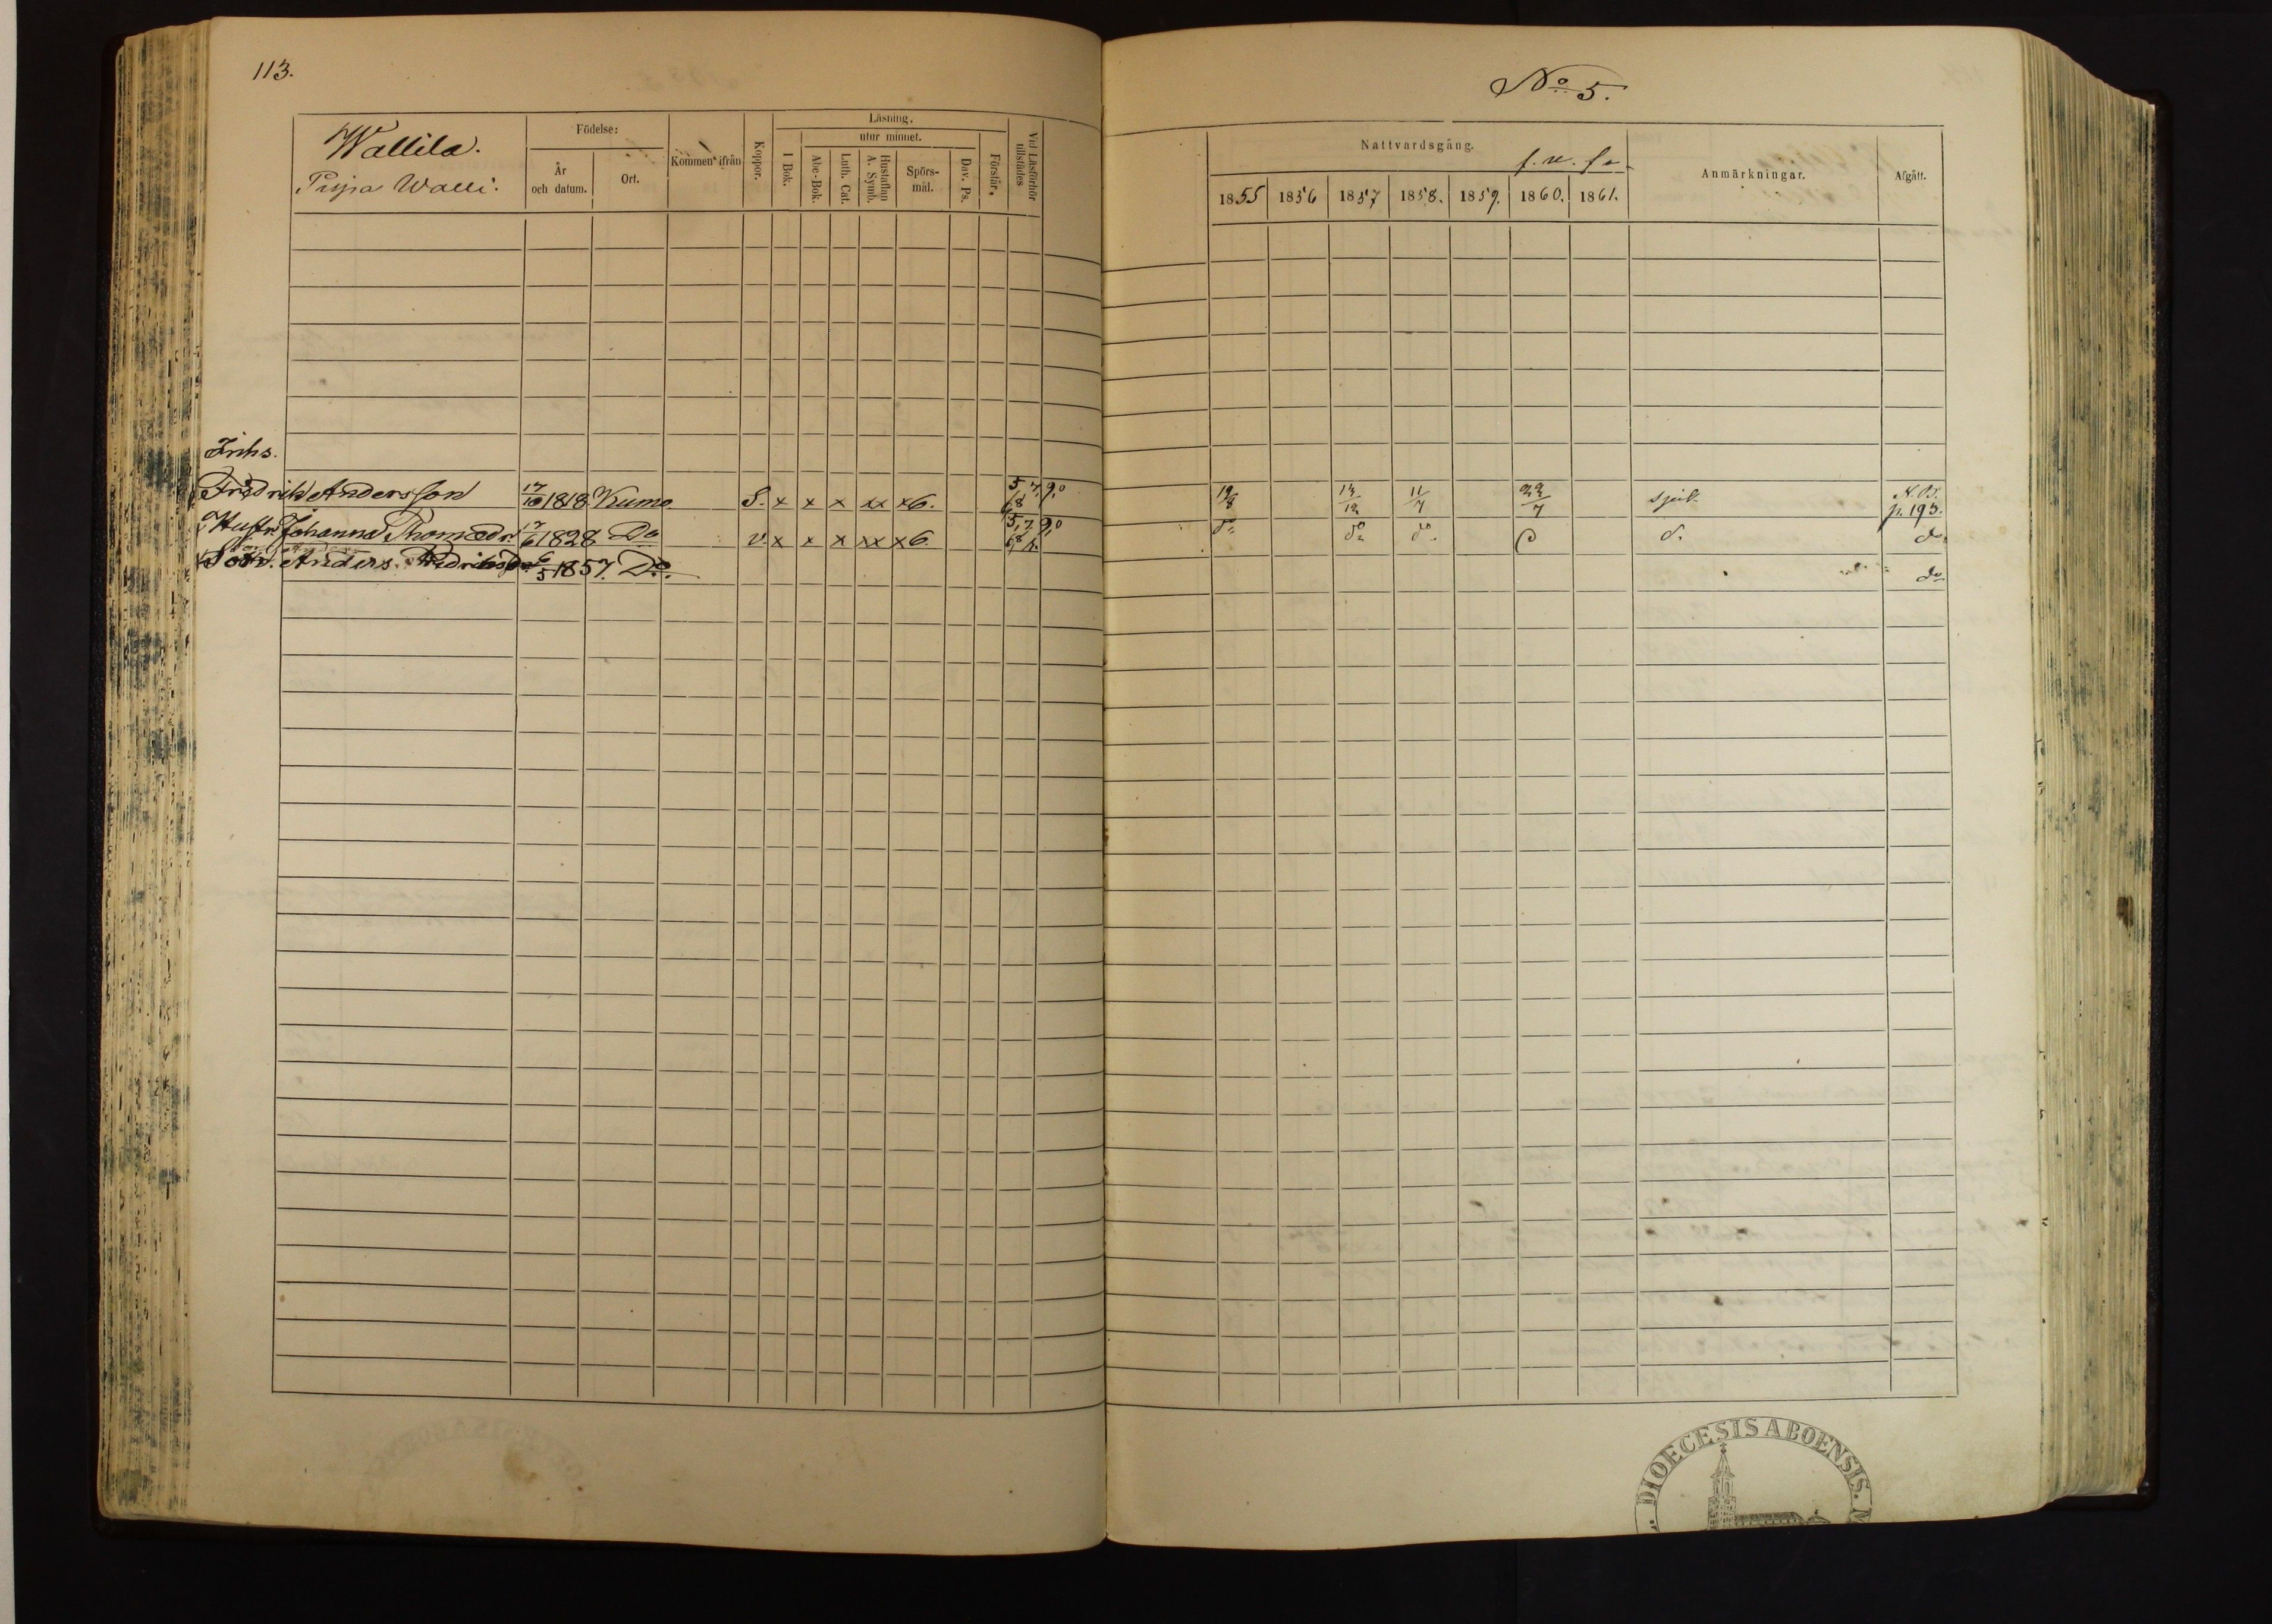 113.
No 5.
Wallila.
Födelse:
Kommen ifrån
Koppor.
Läsning.
Vid Läsförhör tillstädes
År och datum.
Ort.
I Bok.
utur minnet.
Abc-Bok.
Luth. Cat.
Hustaflan A. Symb.
Spörs-mål.
Dav. Ps.
Förstår.
Nattvardsgång.
1855 1856 1857 1858. 1859. 1860. 1861.
Anmärkningar.
Afgått.
Inhs.
Fredrik Andersson 17/10 1818. Kumo. S. x x x xx x6. 5,7,9,0 6,8 19/8 13/12 11/7 22/7 N.B. p. 193.
Hustr. Johanna Thomædr. 1828 Do v. x x x xx x6. 5,7,9,0 6,8 do do do do
Son. Anders Fredriksson 6/5 1857. Do. do
DIOECESIS ABOENSIS.